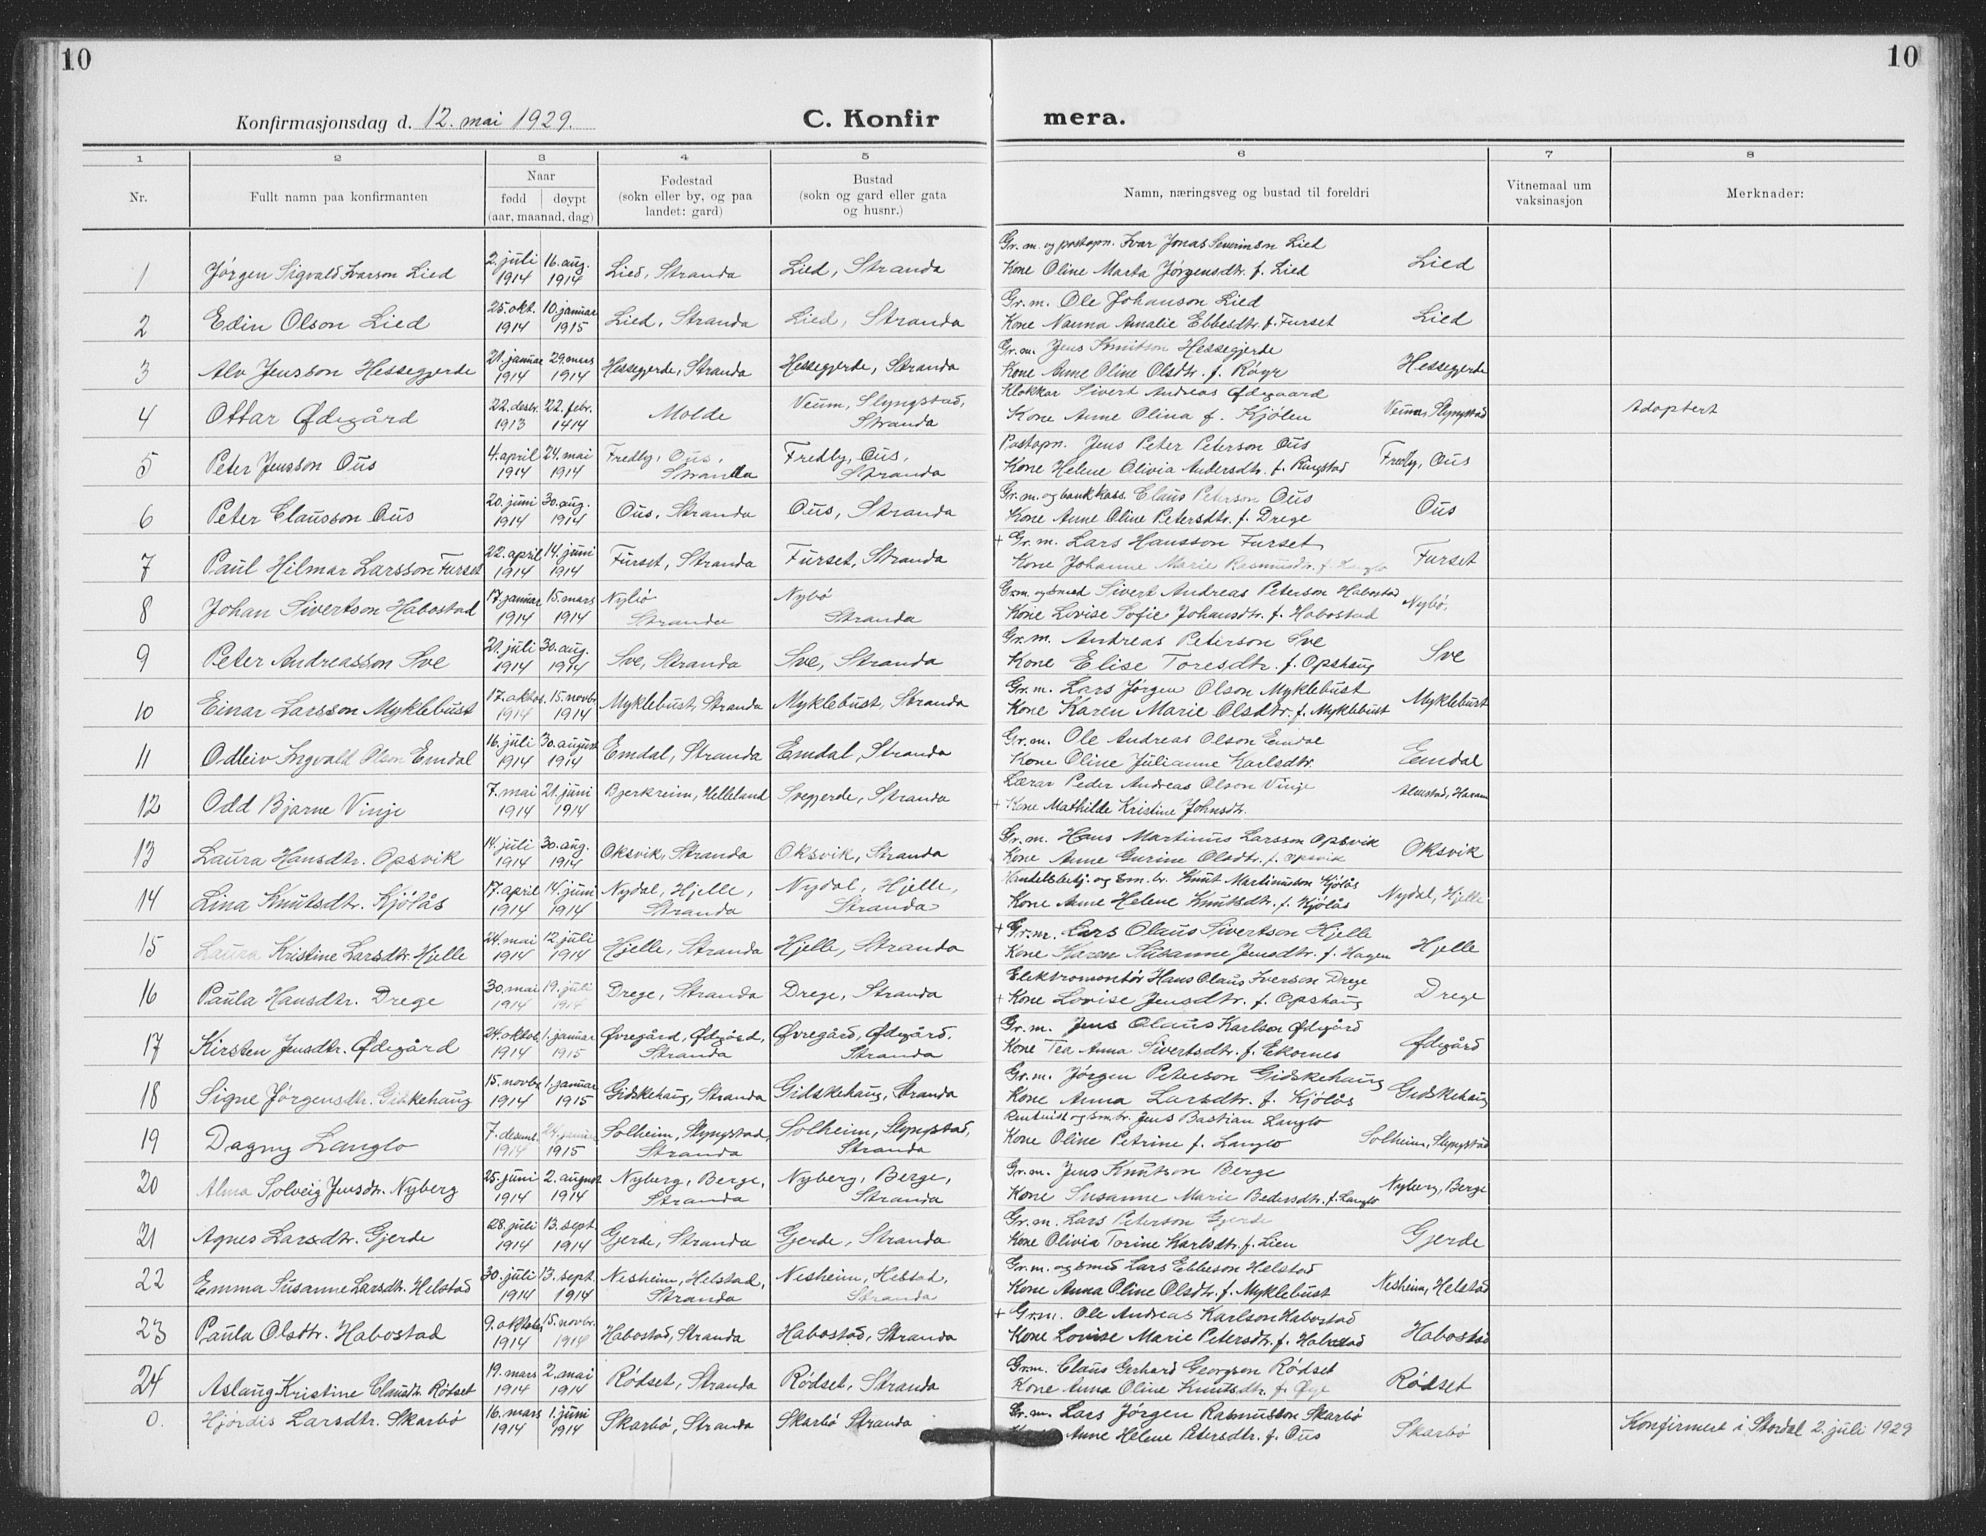 10
10
Konfirmasjonsdag d. 12. mai 1929.
C. Konfir
mera.
1 2 3 4 5 6 7 8
Nr.
Fullt namn paa konfirmanten
Naar
fødd
døypt
(aar, maanad, dag)
Fødestad
(sokn eller by, og paa
landet: gard)
Bustad
(sokn og gard eller gata
og husnr.)
Namn, næringsveg og bustad til foreldri
Vitnemaal um
vaksinasjon
Merknader:
1 Jørgen Sigvald Ivarson Lied 2. juli 1914 16. aug. 1914 Lied, Stranda Lied, Stranda Gr.m. og postopn. Ivar Jonas Severinson Lied Lied
Kone Oline Marta Jørgensdtr. f. Lied
2 Edin Olson Lied 25. okt. 1914 10. januar 1915 Lied, Stranda Lied, Stranda Gr.m. Ole Johanson Lied Lied
Kone Nanna Amalie Ebbesdtr. f. Furset
3 Alv Jensson Hessegjerde 21. januar 1914 29. mars 1914 Hessegjerde, Stranda Hessegjerde, Stranda Gr.m. Jens Knutson Hessegjerde Hessegjerde
Kone Anne Oline Olsdtr. f. Røyr
4 Ottar Ødegård 22. desbr. 1913 22. febr. 1414 Molde Veum, Slyngstad, Stranda Klokkar Sivert Andreas Ødegaard Veum, Slyngstad Adoptert
Kone Anne Olina f. Kjölen
5 Peter Jensson Ous 4. april 1914 24. mai 1914 Fredly, Ous, Stranda Fredly, Ous, Stranda Postopn. Jens Peter Peterson Ous Fredly, Ous
Kone Helene Olivia Andersdtr. f. Ringstad
6 Peter Clausson Ous 20. juni 1914 30. aug. 1914 Ous, Stranda Ous, Stranda Gr.m. og bankkass. Claus Peterson Ous Ous
Kone Anne Oline Petersdtr. f. Drege
7 Paul Hilmar Larsson Furset 22. april 1914 14. juni 1914 Furset, Stranda Furset, Stranda + Gr.m. Lars Hansson Furset Furset
Kone Johanne Marie Rasmusdtr. f. Langlo
8 Johan Sivertson Habostad 17. januar 1914 15. mars 1914 Nybö Stranda Nybö Stranda Gr.m. og smed Sivert Andreas Peterson Habostad Nybö.
Kone Lovise Sofie Johansdtr. f. Habostad
9 Peter Andreasson Sve 21. juli 1914 30. aug. 1914 Sve, Stranda Sve, Stranda Gr.m. Andreas Peterson Sve Sve
Kone Elise Toresdtr. f. Opshaug
10 Einar Larsson Myklebust 17. oktob. 1914 15. novbr. 1914 Myklebust, Stranda Myklebust, Stranda Gr.m. Lars Jørgen Olson Myklebust Myklebust
Kone Karen Marie Olsdtr. f. Myklebust
11 Odleiv Ingvald Olson Emdal 16. juli 1914 30. august 1914 Emdal, Stranda Emdal, Stranda Gr.m. Ole Andreas Olson Emdal Emdal
Kone Oline Julianne Karlsdtr.
12 Odd Bjarne Vinje 7. mai 1914 21. juni 1914 Bjerkreim, Helleland Svegjerde, Stranda Lærar Peder Andreas Olson Vinje Almestad, Haram
+ Kone Mathilde Kristine Johnsdtr.
13 Laura Hansdtr. Opsvik 14. juli 1914 30. aug. 1914 Oksvik, Stranda Oksvik, Stranda Gr.m. Hans Martinus Larsson Opsvik Oksvik
Kone Anne Gurine Olsdtr. f. Opsvik
14 Lina Knutsdtr. Kjölås 17. april 1914 14. juni 1914 Nydal, Hjelle, Stranda Nydal, Hjelle, Stranda Handelsbetj. og sm.br. Knut Martinusson Kjölås Nydal, Hjelle
Kone Anne Helene Knutsdtr. f. Kjölås
15 Laura Kristine Larsdtr. Hjelle 24. mai 1914 12. juli 1914 Hjelle, Stranda Hjelle, Stranda + Gr.m. Lars Olaus Sivertson Hjelle Hjelle
Kone Karen Susanne Jensdtr. f. Hagen
16 Paula Hansdtr. Drege 30. mai 1914 19. juli 1914 Drege, Stranda Drege, Stranda Elektromontør Hans Olaus Iverson Drege Drege
+ Kone Lovise Jensdtr. f. Opshaug
17 Kirsten Jensdtr. Ødegård 24. oktob. 1914 1. januar 1915 Øvregård, Ødegård, Stranda Øvregård, Ødegård, Stranda Gr.m. Jens Olaus Karlson Ødegård Ødegård
Kone Tea Anna Sivertsdtr. f. Ekornes
18 Signe Jørgensdtr. Gidskehaug 15. novbr. 1914 1. januar 1915 Gidskehaug, Stranda Gidskehaug, Stranda Gr.m. Jørgen Peterson Gidskehaug Gidskehaug
Kone Anna Larsdtr. f. Kjölås
19 Dagny Langlo 7. desemb. 1914 24. januar 1915 Solheim, Slyngstad, Stranda Solheim, Slyngstad, Stranda og sm.br. Jens Bastian Langlo Solheim, Slyngstad
Kone Oline Petrine f. Langlo
20 Alma Solveig Jensdtr. Nyberg 25. juni 1914 2. august 1914 Nyberg, Berge, Stranda Nyberg, Berge, Stranda Gr.m. Jens Knutson Berge Nyberg, Berge
Kone Susanne Marie Pedersdtr. f. Langlo
21 Agnes Larsdtr. Gjerde 28. juli 1914 13. sept. 1914 Gjerde, Stranda Gjerde, Stranda Gr.m. Lars Peterson Gjerde Gjerde
Kone Olivia Torine Karlsdtr. f. Lien
22 Emma Susanne Larsdtr. Helstad 30. juli 1914 13. sept. 1914 Nesheim, Helstad, Stranda Nesheim, Helstad, Stranda Gr.m. og smed Lars Ebbeson Helstad Nesheim, Helstad
Kone Anna Oline Olsdtr. f. Myklebust
23 Paula Olsdtr. Habostad 9. oktober 1914 15. novbr. 1914 Habostad, Stranda Habostad, Stranda + Gr.m. Ole Andreas Karlson Habostad Habostad
Kone Lovise Marie Petersdtr. f. Habostad
24 Aslaug Kristine Clausdtr. Rödset 19. mars 1914 2. mai 1914 Rödset, Stranda Rödset, Stranda Gr.m. Claus Gerhard Georgson Rödset Rödset
Kone Anna Oline Knutsdtr. f. Øye
0. Hjördis Larsdtr. Skarbö 16. mars 1914 1. juni 1914 Skarbö, Stranda Skarbö Stranda Gr.m. Lars Jörgen Rasmusson Skarbö Skarbö Konfirmert i Stordal 2. juli 1929
Anne Helene Petersdtr. f. Ous